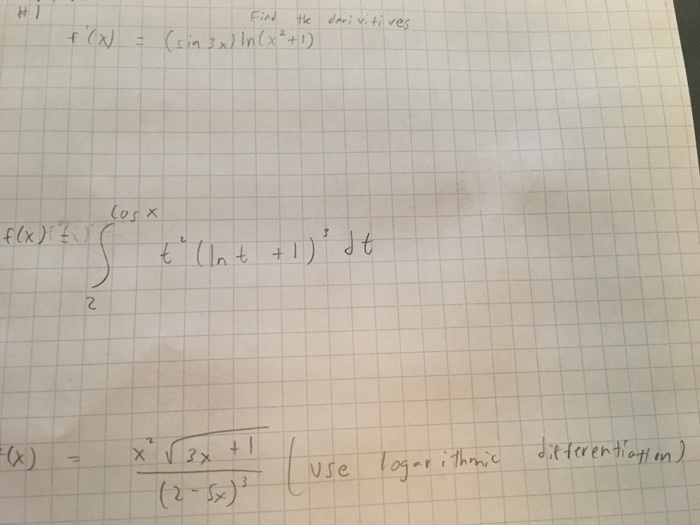 #1 Find the darivitives
f'(x) = (sin 3x) ln(x²+1)
f(x) = ∫₂^(cos x) t² (ln t + 1)³ dt
f(x) = x² √(3x + 1) / (2-5x)³ (use logarithmic differentiation)